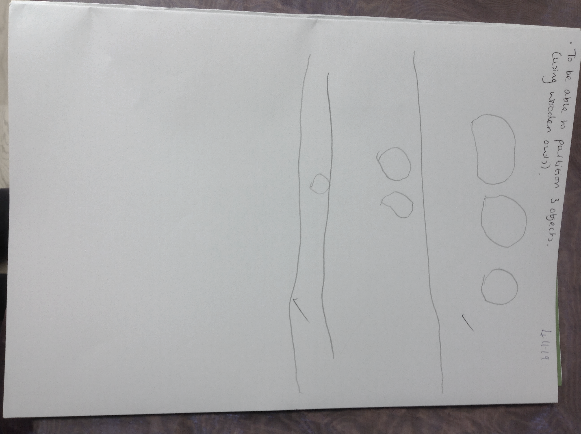 · To be able to partition 3 objects.
(using wooden owls).